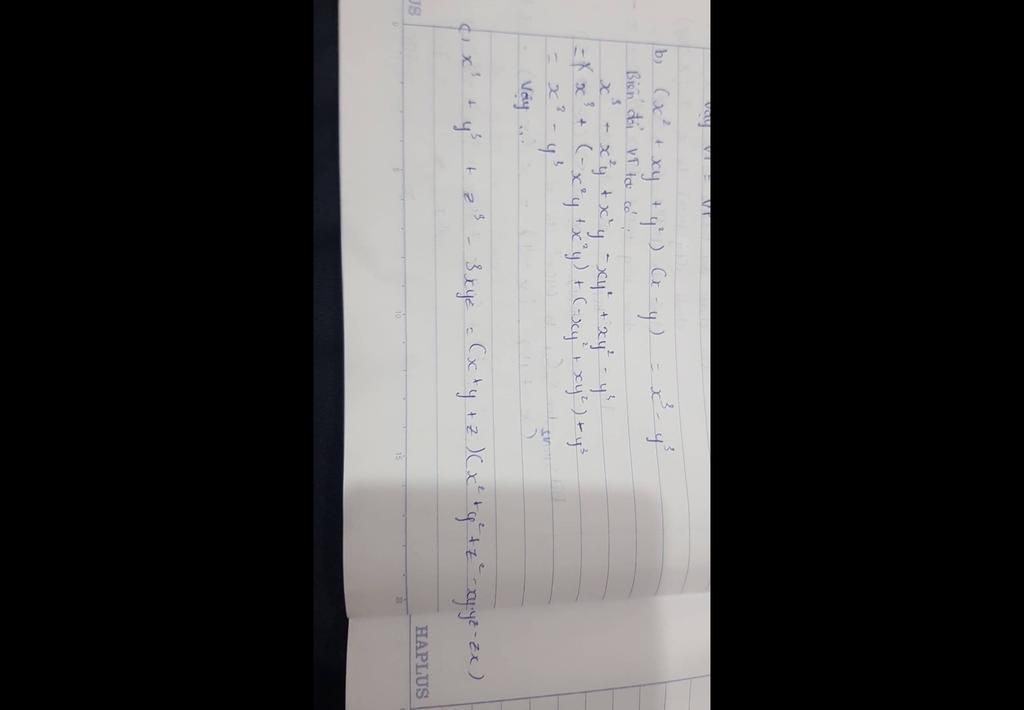 Vậy VT = VP
b, (x² + xy + y²) (x - y) = x³ - y³
Biến đổi VT ta có:
x³ - x²y + x²y - xy² + xy² - y³
= x³ + (-x²y + x²y) + (-xy² + xy²) + y³
= x³ - y³
Vậy ...
c, x³ + y³ + z³ - 3xyz = (x + y + z)(x² + y² + z² - xy - yz - zx)
0 5 10 15
HAPLUS